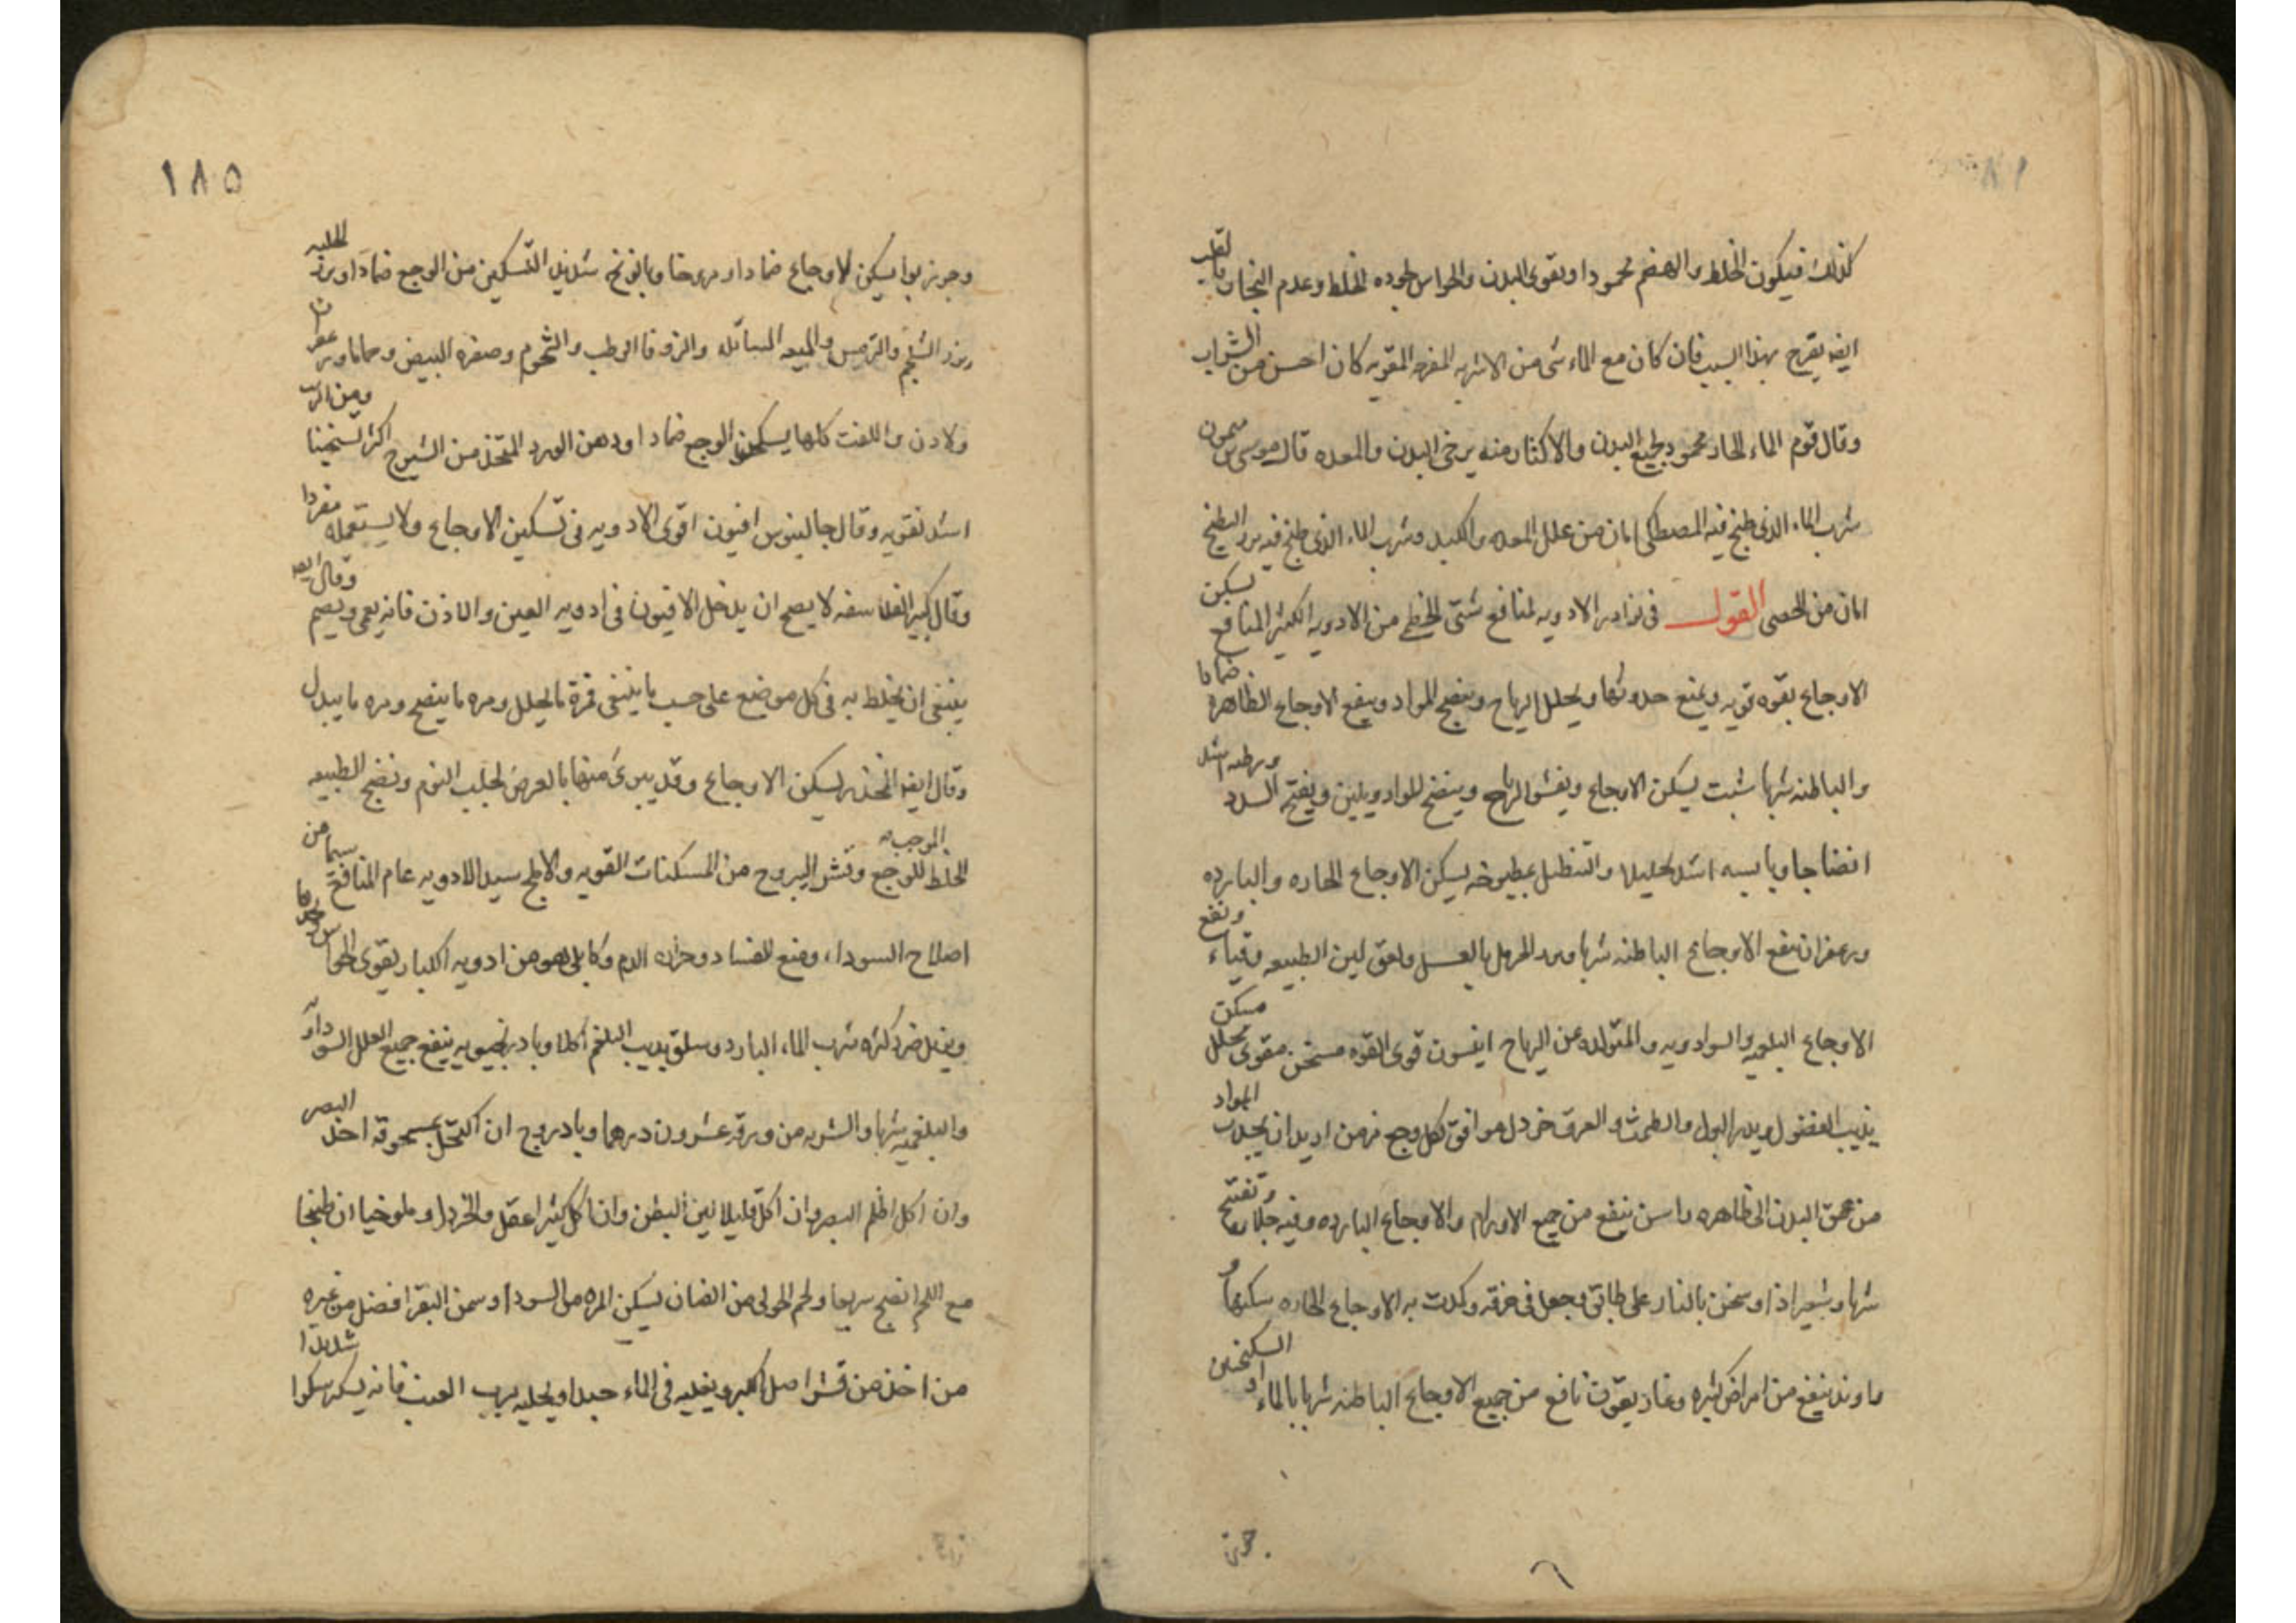 كذلك فيكون الخلط والهضم محمودا ويقوى البدن والحواس لجوده الخلط وعدم البخار والقلب
ايضه يفرح بهذا السبب فان كان مع الماء شى من الاشربه المفرحه المقويه كان احسن من الشراب
وقال قوم الماء الحار محمود لجميع البدن والاكثار منه يرخى البدن والمعده قال موسى بن ميمون
شرب الماء الذى طبخ فيه المصطكى امان من علل المعده والكبد وشرب الماء الذى طبخ فيه بزر البطيخ
امان من الحصى القول فى نوادر الادويه لمنافع شتى الخطمى من الادويه الكثير المنافع يسكن
الاوجاع بقوه قويه ويمنع حدوثها ويحلل الرياح وينضج المواد وينفع الاوجاع الظاهره ضمادا
والباطنه شربا شبت يسكن الاوجاع ويفش الرياح وينضج المواد ويلين ويفتح السدد ورطبه اشد
انضاجا ويابسه اشد تحليلا والتنطيل بمطبوخه يسكن الاوجاع الحاره والبارده
وزعفران ينفع الاوجاع الباطنه شربا وبزر الحرمل بالعسل ولعق لين الطبيعه وقياء ونفع
الاوجاع البلغميه والسوادويه والمتولده عن الرياح انيسون قوى القوه مسخن مقوى محلل مسكن
يذيب الفضول ويدر البول والطمث والعرق خردل موافق لكل وجع مزمن اريد ان يجذب المواد
من عمق البدن الى ظاهره واسن ينفع من جميع الاورام والاوجاع البارده وفيه جلا وتفتيح
شربا وشعير اذا سخن بالنار على طابق وجعل فى خرقه وكمدت به الاوجاع الحاره سكنها و
راوند ينفع من امراض كثيره وغاريقون نافع من جميع الاوجاع الباطنه شربا بالماء او السكنجبين
١٨٥
وجوز بوا يسكن الاوجاع ضمادا ومروخا وبابونج شديد التسكين من الوجع ضمادا وبزر الحلبه
وبزر الشلجم والترمس والميعه السائله والزوفا الرطب والشحوم وصفره البيض وحماما وزعفران
ولادن والزفت كلها يسكن الوجع ضمادا ودهن الورد المتخذ من الشيرج اكثر تسخينا ومن الزيت
اشد تقويه وقال جالينوس افيون اقوى الادويه فى تسكين الاوجاع ولا يستعمله مفردا
وقال كبير الفلاسفه لا يصح ان يدخل الافيون فى ادويه العين والاذن فانه يعمى ويصم وقال ايضه
ينبغى ان يخلط به فى كل موضع على حسب ما ينبغى فمرة ما يحلل ومره ما ينضج ومره ما يبدل
وقال ايضه المخدر يسكن الاوجاع وقد يبرئ منها بالعرض لجلب النوم ونضج الطبيعه
الخلط الموجب للوجع وقشر اليبروح من المسكنات القويه والاملج سيد الادويه عام المنافع سيما من
اصلاح السودا، ومنع الفساد وحراره الدم وكابلى هو من ادويه الكبار يقوى الحواس كلها
ويزيل ضرر كثره شرب الماء البارد وسلق يذيب البلغم اكلا وبادرنجبويه ينفع جميع العلل السوداويه
والبلغميه شربا والشربه من ورقه عشرون درهما وبادروج ان اكتحل بمسحوقه احد البصر
وان اكل اظلم البصر وان اكل قليلا لين البطن وان اكل كثيرا عقل والخردل وملوخيا ان طبخا
مع اللحم انضج سريعا ولحم الحولى من الضان يسكن المره من السودا وسمن البقر افضل من غيره
من اخذ من قشر اصل الكبر ويغليه فى الماء جيدا ويحليه برب العنب فانه يسكر سكرا شديدا